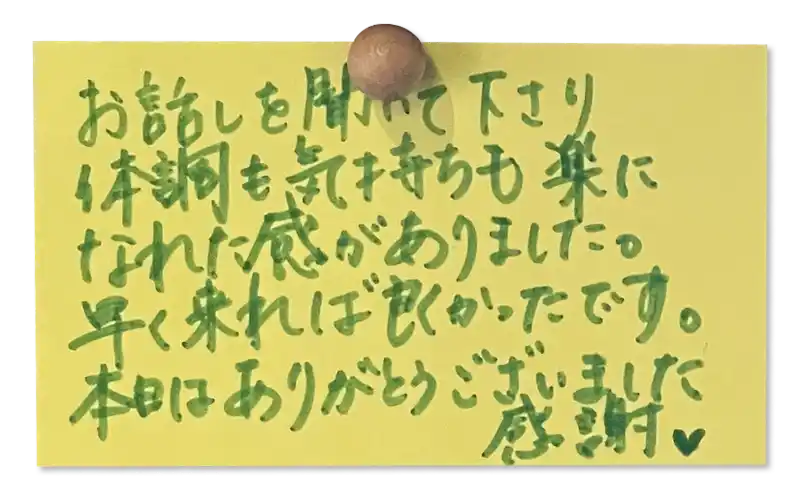 お話しを聞いて下さり
体調も気持ちも楽に
なれた感がありました。
早く来れば良くかったです。
本日はありがとうございました
感謝♥